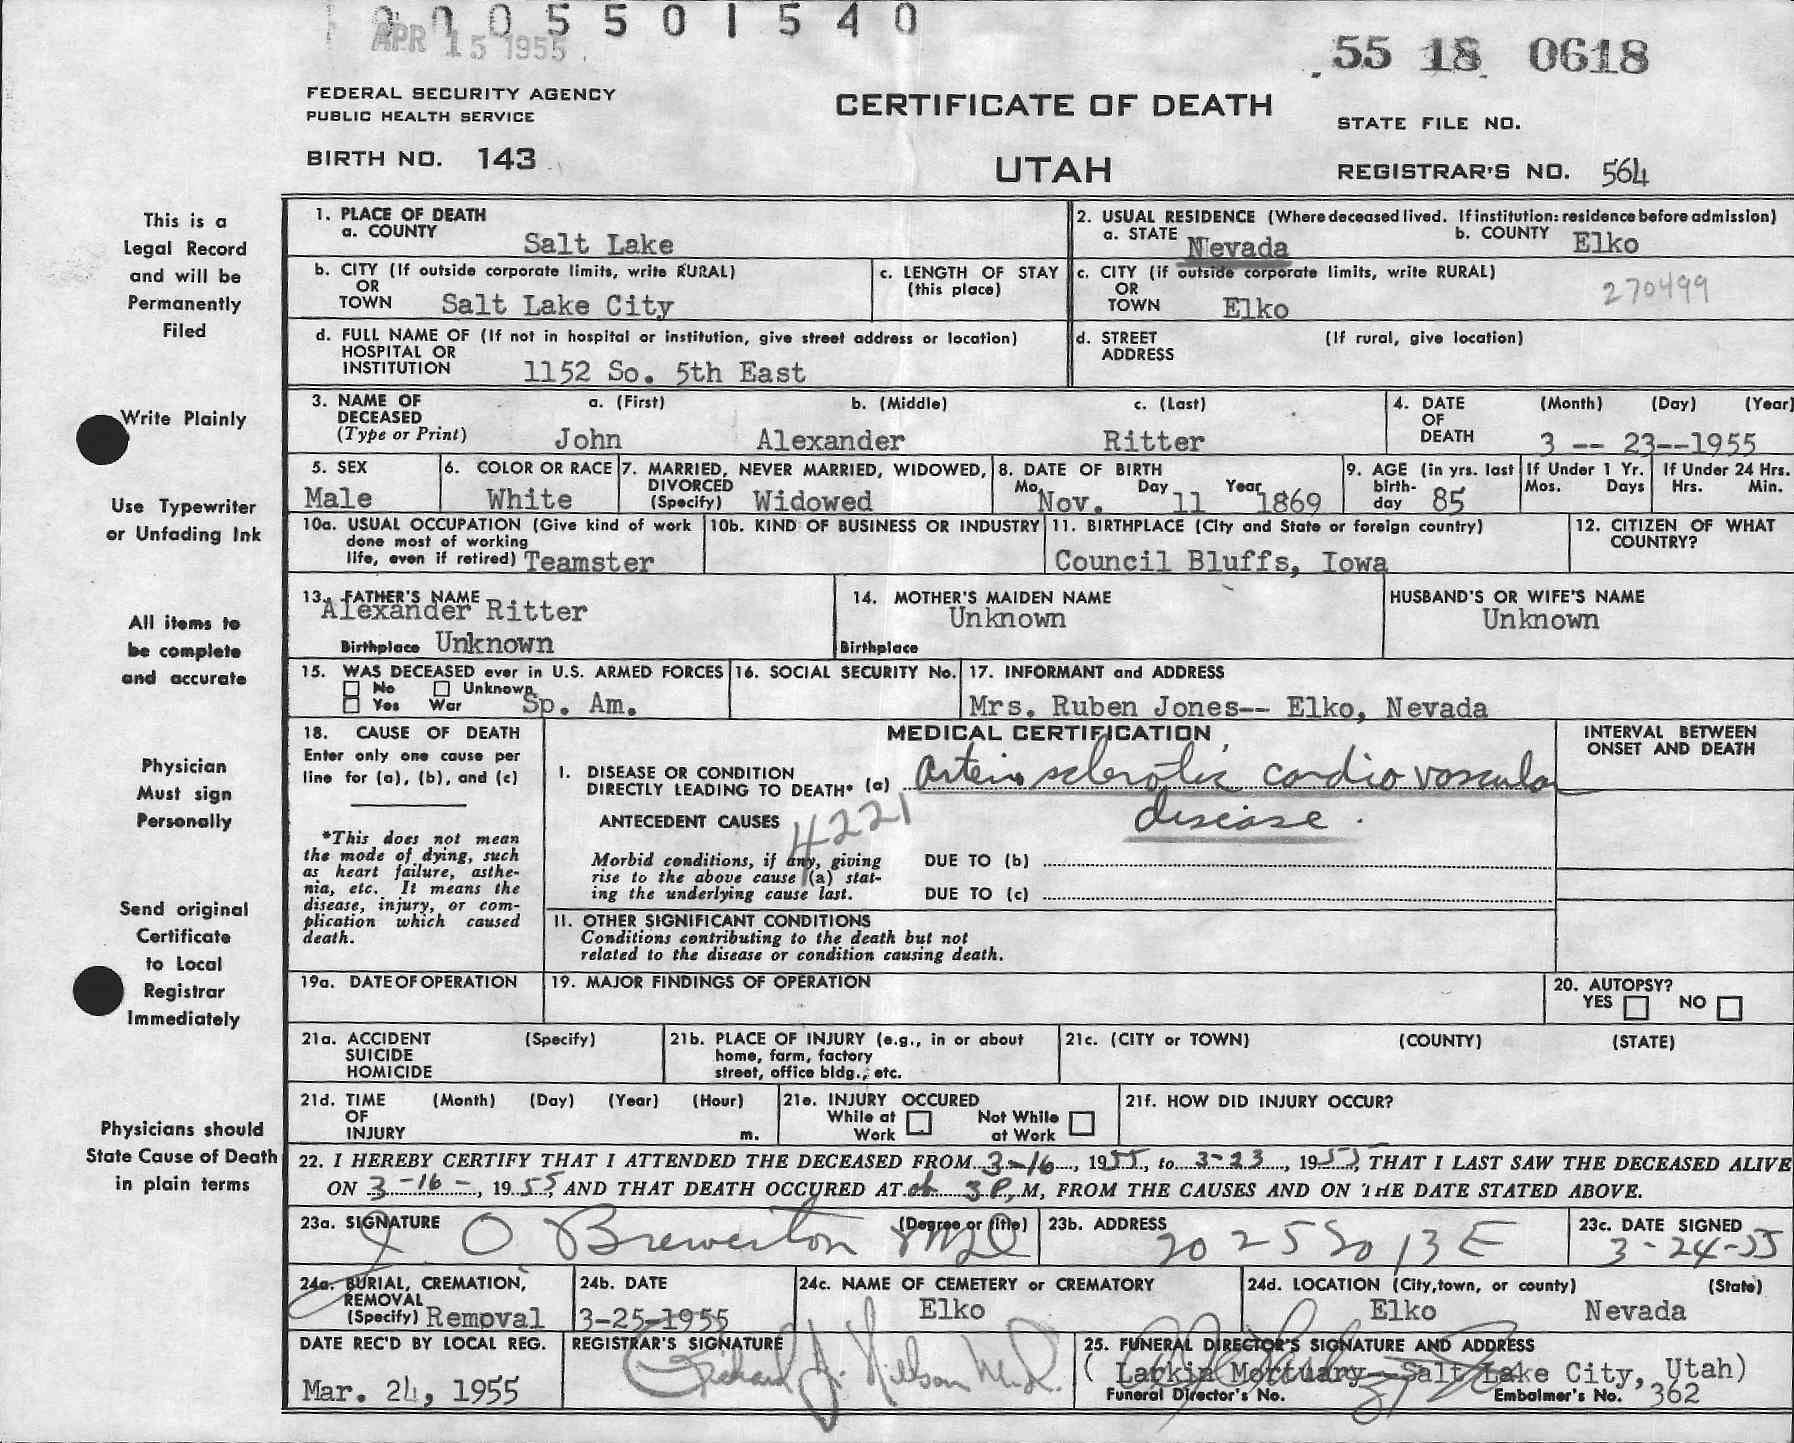 0005501540
APR 15 1955
55 18 0618
FEDERAL SECURITY AGENCY
PUBLIC HEALTH SERVICE
CERTIFICATE OF DEATH
STATE FILE NO.
BIRTH NO. 143
UTAH
REGISTRAR'S NO. 564
This is a
Legal Record
and will be
Permanently
Filed
Write Plainly
Use Typewriter
or Unfading Ink
All items to
be complete
and accurate
Physician
Must sign
Personally
Send original
Certificate
to Local
Registrar
Immediately
Physicians should
State Cause of Death
in plain terms
1. PLACE OF DEATH
a. COUNTY Salt Lake
2. USUAL RESIDENCE (Where deceased lived. If institution: residence before admission)
a. STATE Nevada b. COUNTY Elko
b. CITY (If outside corporate limits, write RURAL)
OR
TOWN Salt Lake City
c. LENGTH OF STAY
(this place)
c. CITY (if outside corporate limits, write RURAL)
OR
TOWN Elko
270499
d. FULL NAME OF (If not in hospital or institution, give street address or location)
HOSPITAL OR
INSTITUTION 1152 So. 5th East
d. STREET (If rural, give location)
ADDRESS
3. NAME OF a. (First) b. (Middle) c. (Last)
DECEASED
(Type or Print) John Alexander Ritter
4. DATE (Month) (Day) (Year)
OF
DEATH 3 -- 23--1955
5. SEX
Male
6. COLOR OR RACE
White
7. MARRIED, NEVER MARRIED, WIDOWED,
DIVORCED
(Specify) Widowed
8. DATE OF BIRTH
Mo. Day Year
Nov. 11 1869
9. AGE (in yrs. last
birth-
day 85
If Under 1 Yr.
Mos. Days
If Under 24 Hrs.
Hrs. Min.
10a. USUAL OCCUPATION (Give kind of work
done most of working
life, even if retired) Teamster
10b. KIND OF BUSINESS OR INDUSTRY
11. BIRTHPLACE (City and State or foreign country)
Council Bluffs, Iowa
12. CITIZEN OF WHAT
COUNTRY?
13. FATHER'S NAME
Alexander Ritter
Birthplace Unknown
14. MOTHER'S MAIDEN NAME
Unknown
Birthplace
HUSBAND'S OR WIFE'S NAME
Unknown
15. WAS DECEASED ever in U.S. ARMED FORCES
No Unknown
Yes War Sp. Am.
16. SOCIAL SECURITY No.
17. INFORMANT and ADDRESS
Mrs. Ruben Jones-- Elko, Nevada
18. CAUSE OF DEATH
Enter only one cause per
line for (a), (b), and (c)
*This does not mean
the mode of dying, such
as heart failure, asthe-
nia, etc. It means the
disease, injury, or com-
plication which caused
death.
MEDICAL CERTIFICATION
INTERVAL BETWEEN
ONSET AND DEATH
I. DISEASE OR CONDITION
DIRECTLY LEADING TO DEATH* (a) Arteriosclerotic cardio vascular
disease.
ANTECEDENT CAUSES 4221
Morbid conditions, if any, giving
rise to the above cause (a) stat-
ing the underlying cause last.
DUE TO (b)
DUE TO (c)
II. OTHER SIGNIFICANT CONDITIONS
Conditions contributing to the death but not
related to the disease or condition causing death.
19a. DATE OF OPERATION
19. MAJOR FINDINGS OF OPERATION
20. AUTOPSY?
YES NO
21a. ACCIDENT (Specify)
SUICIDE
HOMICIDE
21b. PLACE OF INJURY (e.g., in or about
home, farm, factory
street, office bldg., etc.
21c. (CITY or TOWN) (COUNTY) (STATE)
21d. TIME (Month) (Day) (Year) (Hour)
OF
INJURY m.
21e. INJURY OCCURED
While at Not While
Work at Work
21f. HOW DID INJURY OCCUR?
22. I HEREBY CERTIFY THAT I ATTENDED THE DECEASED FROM 3-16, 1955, to 3-23, 1955, THAT I LAST SAW THE DECEASED ALIVE
ON 3-16-, 1955, AND THAT DEATH OCCURED AT 3 P,M, FROM THE CAUSES AND ON THE DATE STATED ABOVE.
23a. SIGNATURE (Degree or title)
J O Brewerton MD
23b. ADDRESS
2025 So 13 E
23c. DATE SIGNED
3-24-55
24a. BURIAL, CREMATION,
REMOVAL
(Specify) Removal
24b. DATE
3-25-1955
24c. NAME OF CEMETERY or CREMATORY
Elko
24d. LOCATION (City, town, or county) (State)
Elko Nevada
DATE REC'D BY LOCAL REG.
Mar. 24, 1955
REGISTRAR'S SIGNATURE
Richard J. Nielson M.D.
25. FUNERAL DIRECTOR'S SIGNATURE AND ADDRESS
( Larkin Mortuary--Salt Lake City, Utah)
Funeral Director's No. Embalmer's No. 362